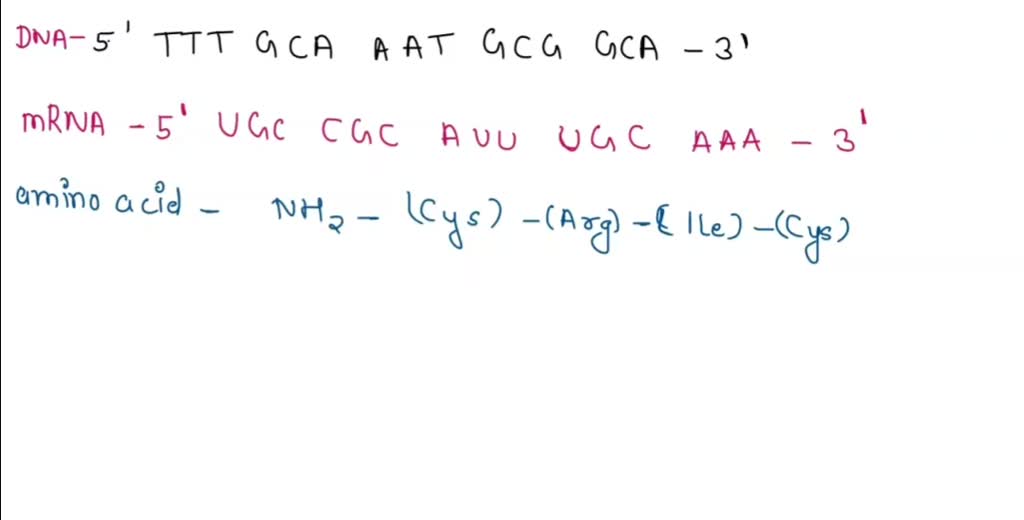 DNA - 5' TTT GCA AAT GCG GCA - 3'
mRNA - 5' UGC CGC AUU UGC AAA - 3'
amino acid - NH2 - (Cys) - (Arg) - (Ile) - (Cys)